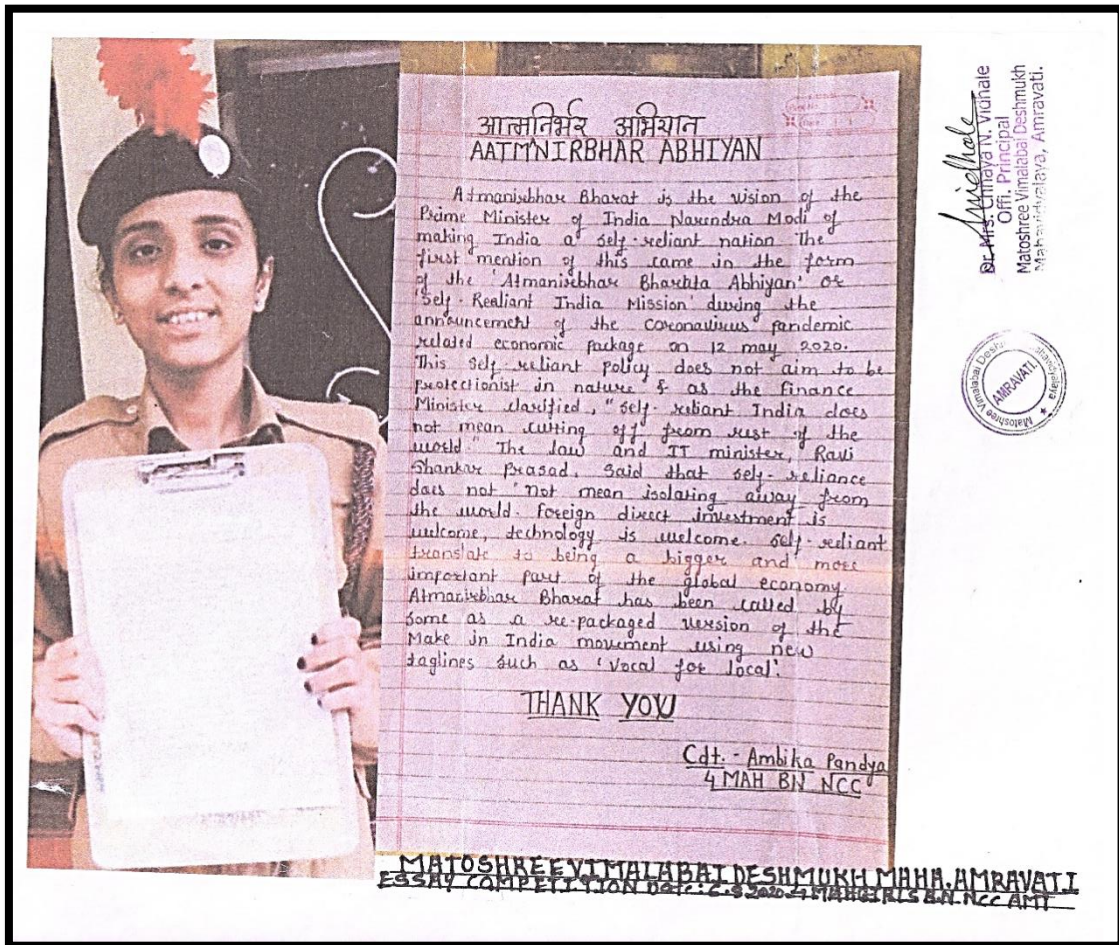 आत्मनिर्भर अभियान
AATMNIRBHAR ABHIYAN
Atmanirbhar Bharat is the vision of the
Prime Minister of India Narendra Modi of
making India a self-reliant nation The
first mention of this came in the form
of the 'Atmanirbhar Bharhta Abhiyan' or
'Self-Realiant India Mission' during the
announcement of the coronavirus pandemic
related economic package on 12 may 2020.
This self reliant policy does not aim to be
protectionist in nature & as the Finance
Minister clarified, "self-reliant India does
not mean cutting off from rest of the
world" The law and IT minister, Ravi
Shankar Prasad, said that self-reliance
does not 'not mean isolating away from
the world. Foreign direct investment is
welcome, technology is welcome. self-reliant
translate to being a bigger and more
important part of the global economy.
Atmanirbhar Bharat has been called by
some as a re-packaged version of the
Make in India movement using new
taglines such as 'Vocal for local'.
THANK YOU
Cdt. - Ambika Pandya
4 MAH BN NCC
MATOSHREE VIMALABAI DESHMUKH MAHA. AMRAVATI
ESSAY COMPETITION DATE: 2020 4 MAH GIRLS BN. NCC AMT
Dr. Mrs. Chhaya N. Vidhale
Offi. Principal
Matoshree Vimalabai Deshmukh
Mahavidyalaya, Amravati.
Matoshree Vimalabai
AMRAVATI